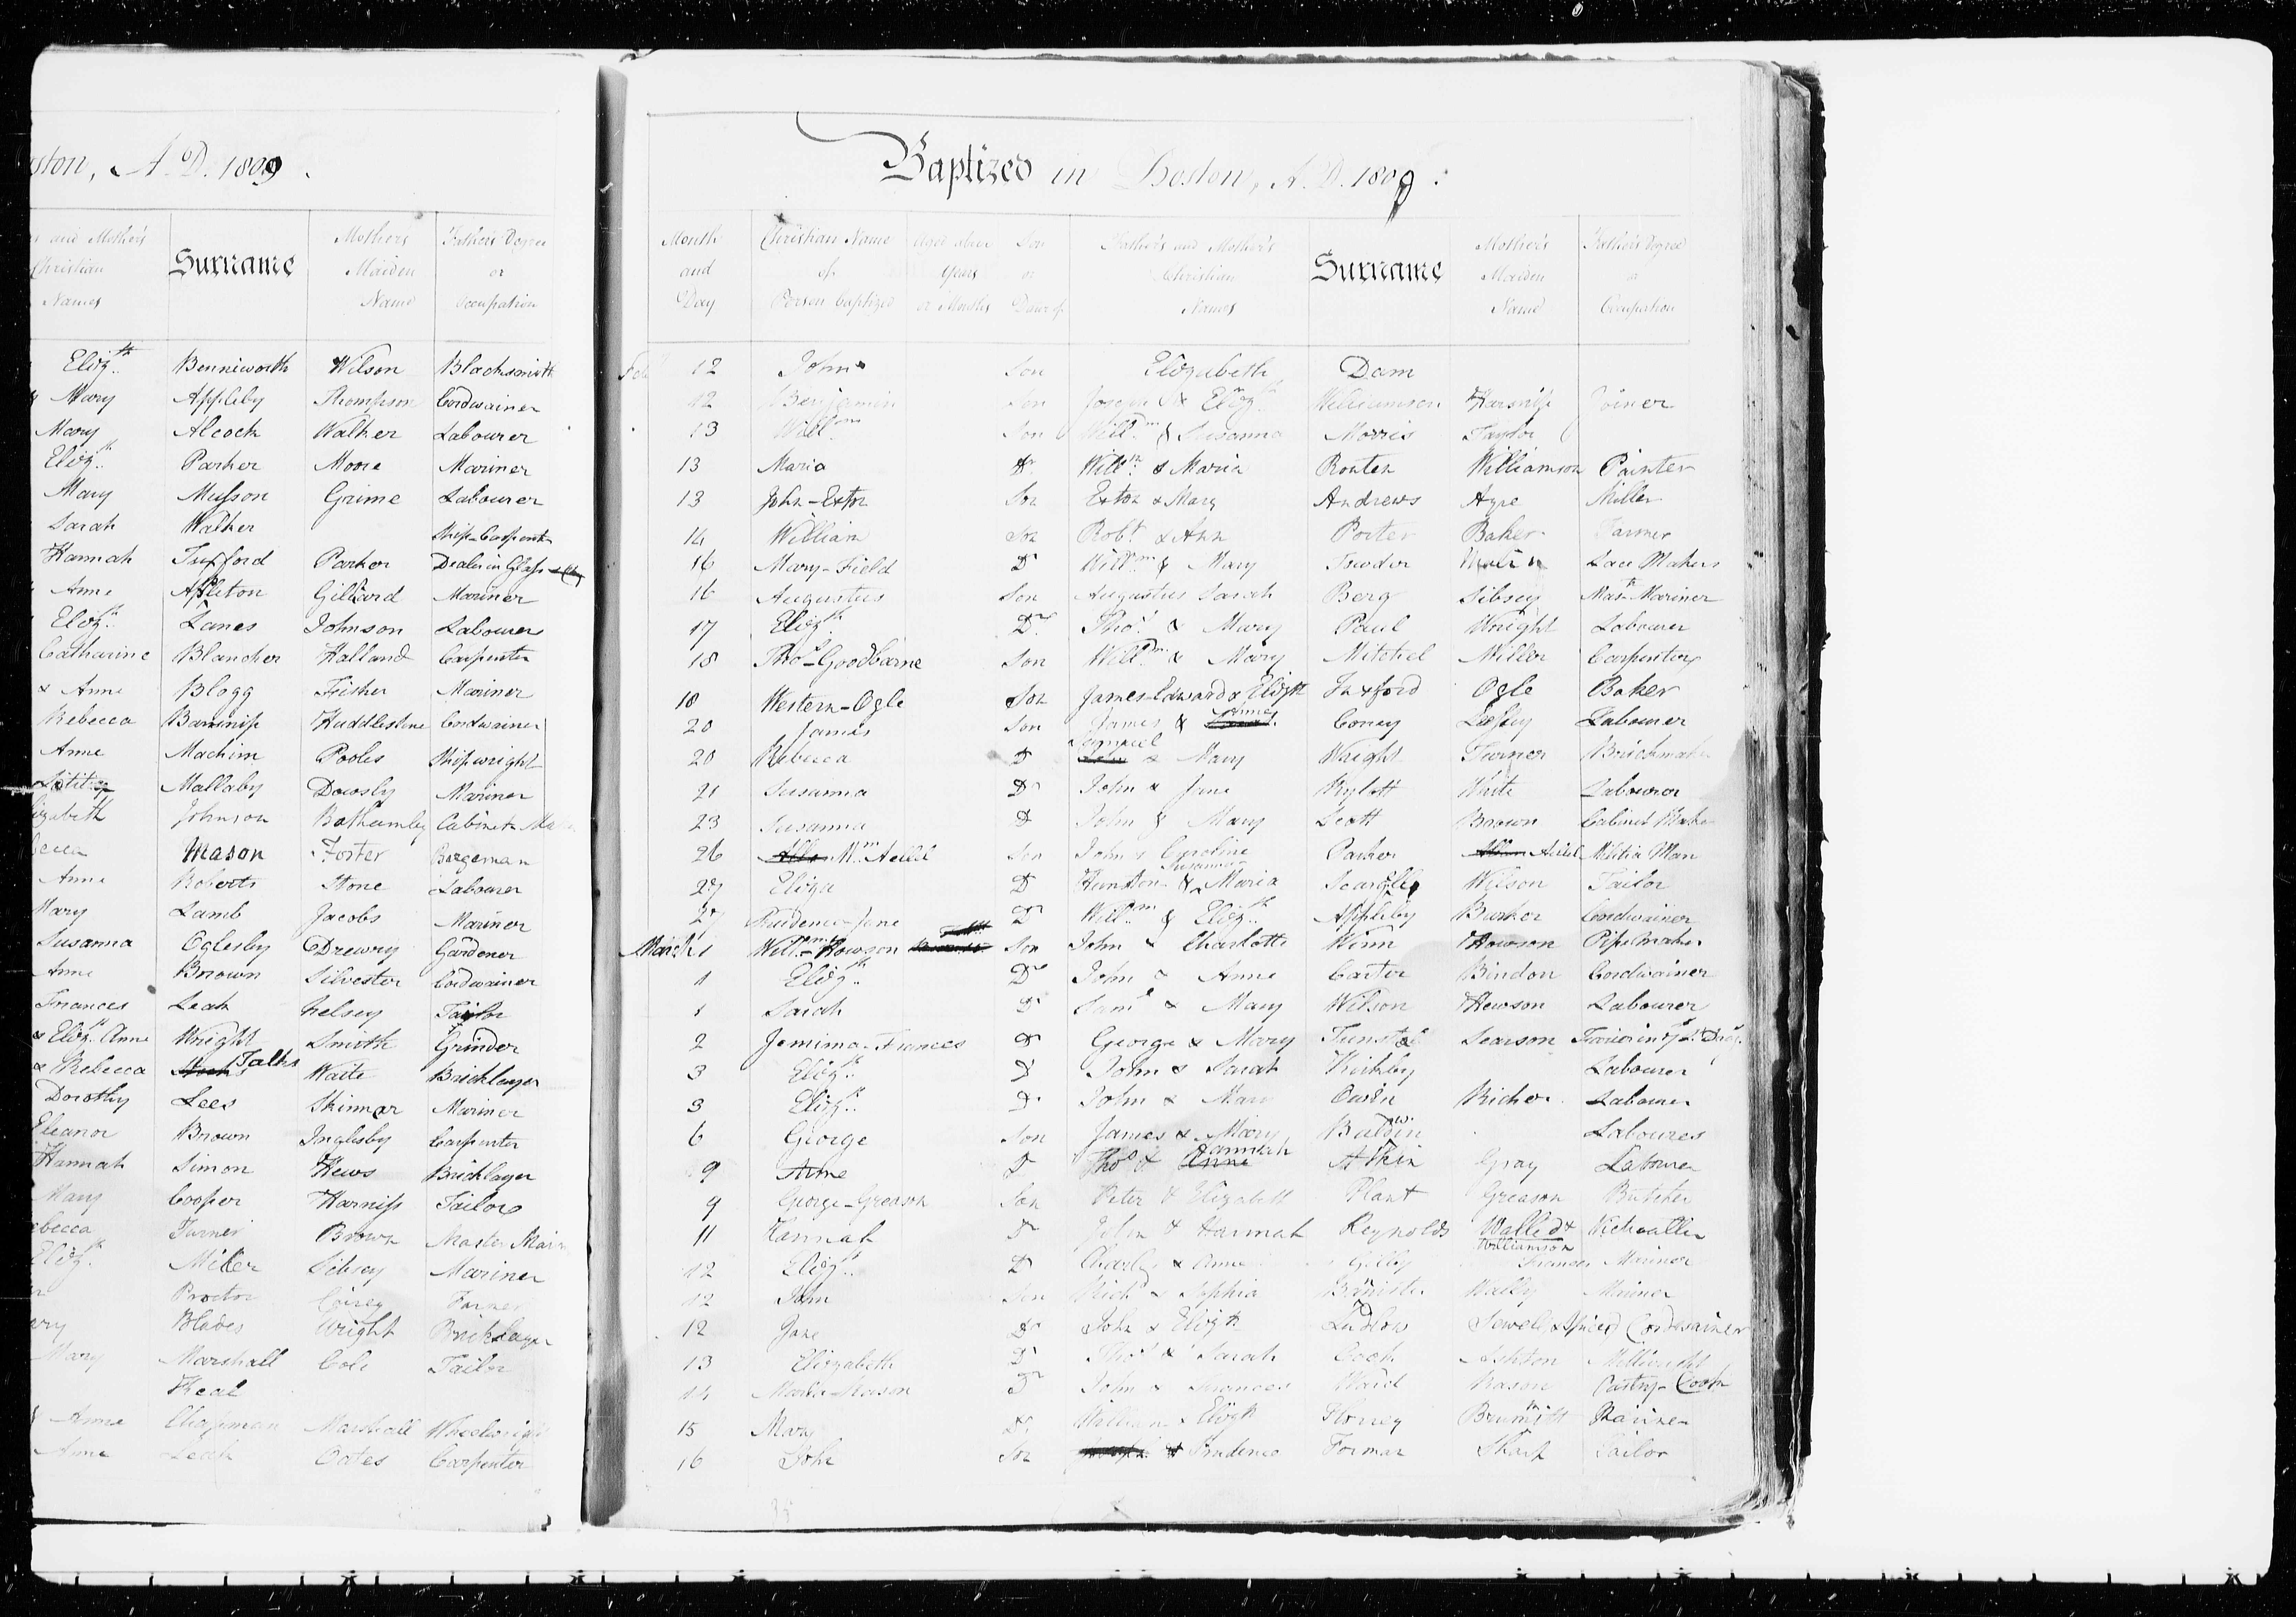 ston, A.D. 1809.
and Mother's Christian Names Surname Mother's Maiden Name Father's Degree or Occupation
Eliz.th Benniworth Wilson Blacksmith
Mary Appleby Thompson Cordwainer
Mary Alcock Walker Labourer
Eliz.th Parker Moore Mariner
Mary Musson Grime Labourer
Sarah Walker Ship-Carpenter
Hannah Tuxford Parker Dealer in Glass
Anne Apleton Gilliard Mariner
Eliz.th Lanes Johnson Labourer
Catharine Blancher Halland Carpenter
& Anne Blogg Fisher Mariner
Rebecca Huddlestone Cordwainer
Anne Machim Pooles Shipwright
Mallaby Dowsby Mariner
lizabeth Johnson Bothamley Cabinet
becca Mason Foster Bargeman
Anne Roberts Stone Labourer
Mary Lamb Jacobs Mariner
Susanna Oglesby Drewry Gardener
Anne Brown Silvester Cordwainer
Frances Leak Kelsey Tailor
& Eliz.th Anne Wright Smith Grinder
& Rebecca Talks Waite Bricklayer
Dorothy Lees Skinner Mariner
Eleanor Brown Inglesby Carpenter
Hannah Simon Hews Bricklayer
Mary Cooper Harniss Tailor
ebecca Turner Brown Master
Eliz.th Miller Sibsey Mariner
Proctor Farmer
ary Blades Wright Bricklayer
Mary Marshall Cole Tailor
Heal
& Anne Chapman Marshall Wheelwright
Anne Leak Oates Carpenter
Baptized in Boston, A.D. 1809.
Month and Day Christian Name of Person Baptized Aged about Years or Months Son or Daur of Father's and Mother's Christian Names Surname Mother's Maiden Name Father's Degree or Occupation
Feb 12 John Son Elizabeth Dam
12 Benjamin Son Joseph & Eliz.th Williamson Joiner
13 Will.m Son Will.m & Susanna Morris Taylor
13 Maria Dr Will.m & Maria Williamson Painter
13 John-Exton Son Exton & Mary Andrews Ayre Miller
14 William Son Robt & Ann Porter Baker Farmer
16 Mary-Field D Will.m & Mary Lace Maker
16 Augustus Son Augustus Sarah Berg Sibsey Mariner
17 Eliz.th Dr Thos & Mary Paul Wright Labourer
18 Thos-Goodbarne Son Will.m & Mary Mitchel Miller Carpenter
18 Western-Ogle Son James-Edward & Elizth Tuxford Ogle Baker
20 James Son James & Anne Coney Labourer
20 Rebecca D Samuel & Mary Wright Turner Brickmaker
21 Susanna Dr John & Jane Rylott White Labourer
23 Susanna D John & Mary Scott Brown Cabinet Maker
26 Son John & Parker Militia Man
27 Eliza D & Susanna Maria Wilson Tailor
27 Prudence-Jane Dr Will.m & Eliz.th Appleby Cordwainer
March 1 Will.m-Howson Son John & Charlotte Winn Howson Pipe Maker
1 Eliz.th Dr John & Anne Carter Bindon Cordwainer
1 Sarah D Saml & Mary Wilson Hewson Labourer
2 Jemima-Frances Dr George & Mary Tunstal Searson
3 Eliz.th D John & Sarah Kirkby Labourer
3 Eliz.th D John & Mary Labourer
6 George Son James & Mary Labourer
9 Anne D Thos & Hannah Atkin Gray Labourer
9 George-Greason Son Peter & Elizabeth Plant Greason Butcher
11 Hannah Dr John & Hannah Reynolds Williamson
12 Eliz.th D Charles & Anne Gilby Mariner
12 John Son Richd & Sophia Mariner
12 Jane Dr John & Elizth Ludlow Cordwainer
13 Elizabeth D Thos & Sarah Cook Ashton Millwright
14 Dr John & Frances Ward Mason Pastry-Cook
15 Mary Dr William & Elizth
16 John Son & Prudence Forman Sharp Sailor